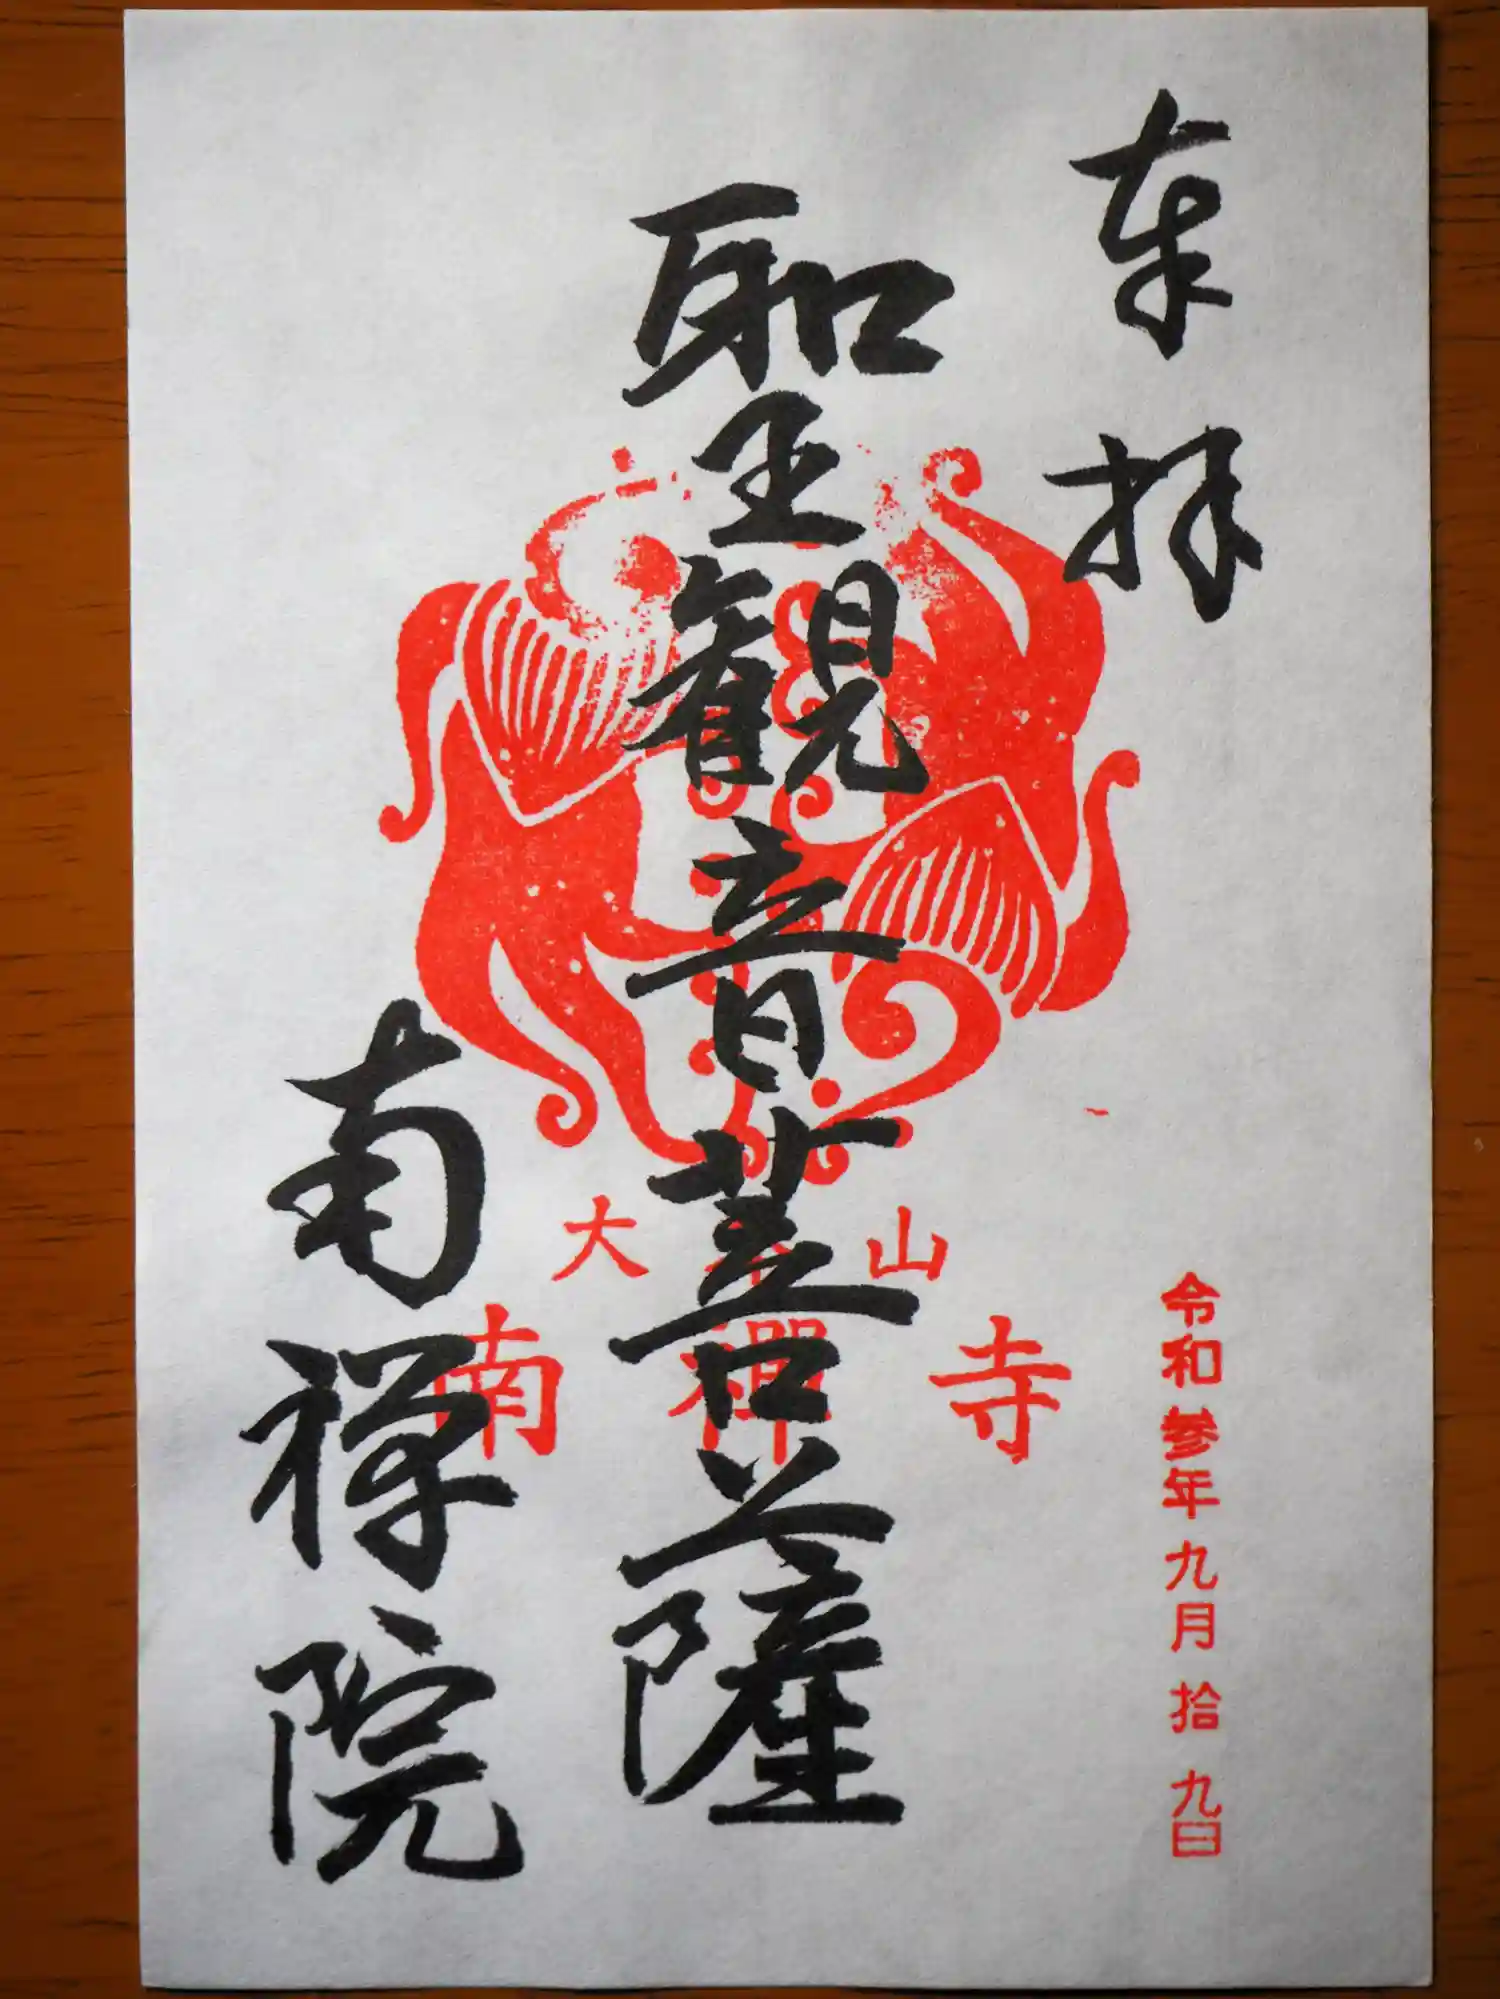 奉拝
令和参年九月拾九日
聖観音菩薩
大本山
南禅寺
南禅院